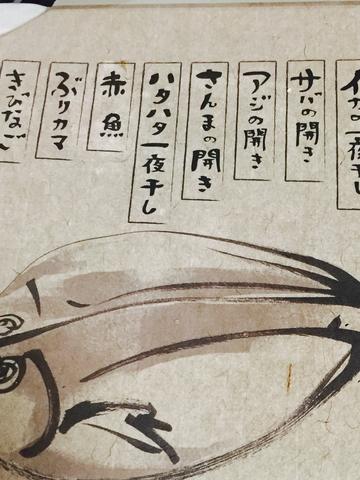 イカの一夜干し
サバの開き
アジの開き
さんまの開き
ハタハタ一夜干し
赤魚
ぶりカマ
きびなご